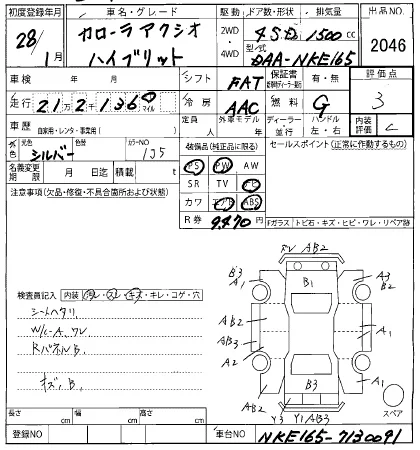 初度登録年月 車名・グレード 駆動 ドア数・形状 排気量 出品NO.
28/1月 カローラ アクシオ ハイブリット 2WD・4WD 4SD 1500cc
型式 DAA-NKE165 2046
車検 年 月 シフト FAT 保証書 有・無 評価点
走行 21万2千136 マイル 冷房 AAC 燃料 G 3
車歴 自家用・レンタ・事業用( ) 外車モデル 年 ディーラー・並行 ハンドル 左・右 内装評価 C
外色 元色 シルバー 色替 カラーNO 1J5 装備品(純正品に限る) セールスポイント(正常に作動するもの)
名義変更期限 月 日迄 積載 t PS PW AW
注意事項(欠品・修復・不具合箇所および状態) SR TV ナビ
カワ エアB ABS
R券 9470 Fガラス トビ石・キズ・ヒビ・ワレ・リペア跡
AB2
B3 A1 B1 A3 B2
検査員記入 内装 汚レ・スレ・キズ・キレ・コゲ・穴
シートヘタリ AB2
W/C-A.ワレ AB3 A1
RパネルB. A2
キズ、B. A1 AB2 B3 A1 スペア
Y3 Y1 AB3
長さ cm 幅 cm 高さ cm
登録NO 車台NO NKE165-7130091